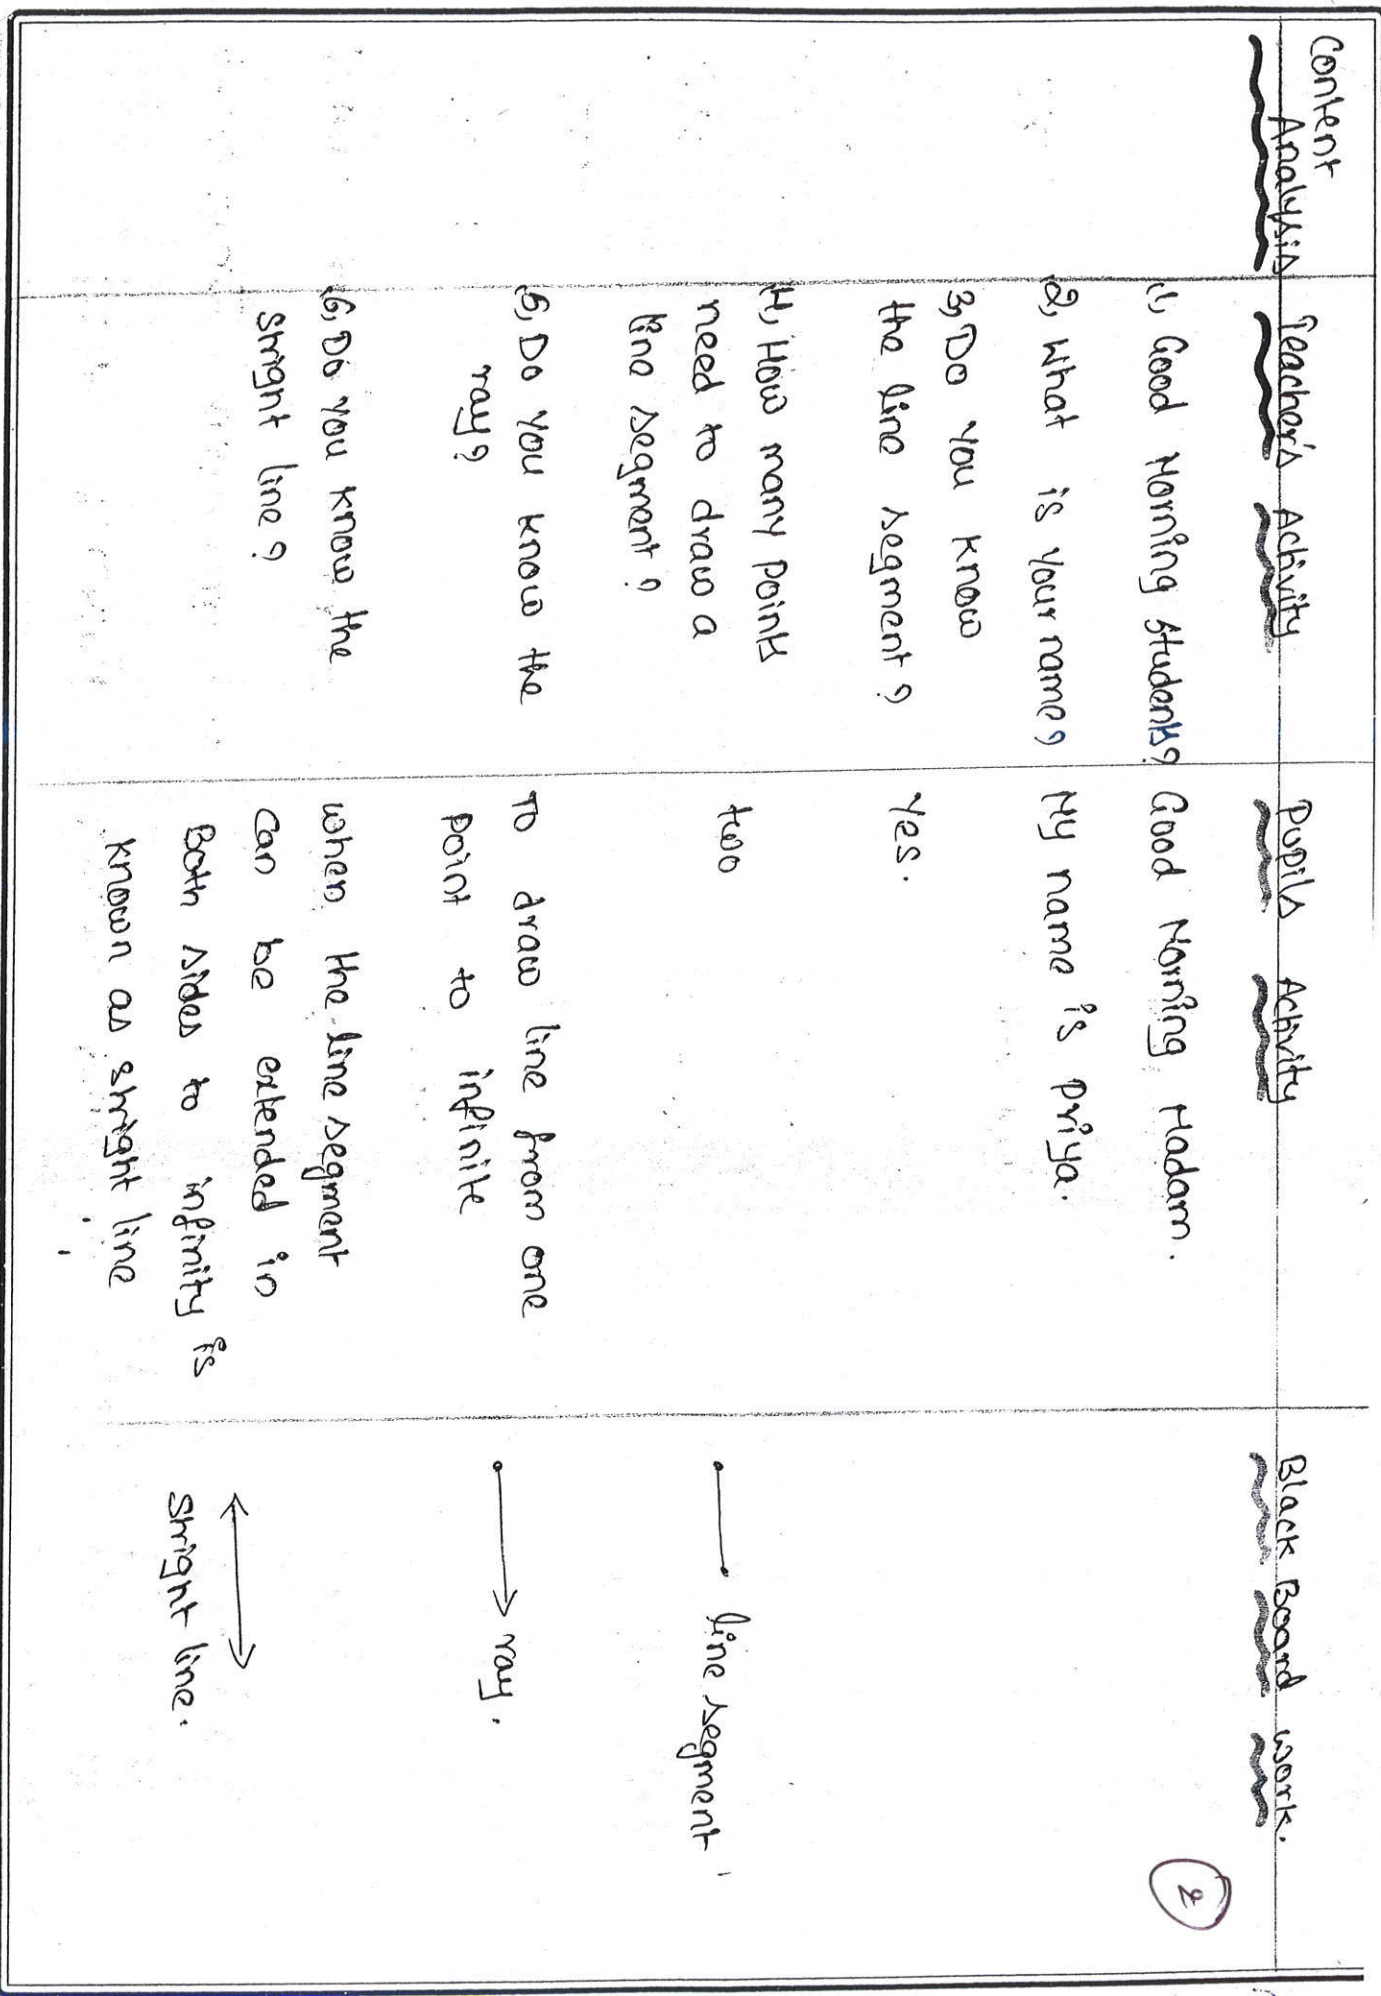 Content
Analysis
Teacher's Activity
Pupils Activity
Black Board work.
2
1, Good Morning Students?
Good Morning Madam.
2, What is your name?
My name is priya.
3, Do you know
the line segment?
Yes.
4, How many points
need to draw a
line segment?
two
line segment
5, Do you know the
ray?
To draw line from one
point to infinite
ray.
6, Do you know the
Shright line?
when the line segment
can be extended in
Both sides to infinity is
known as shright line
Shright line.